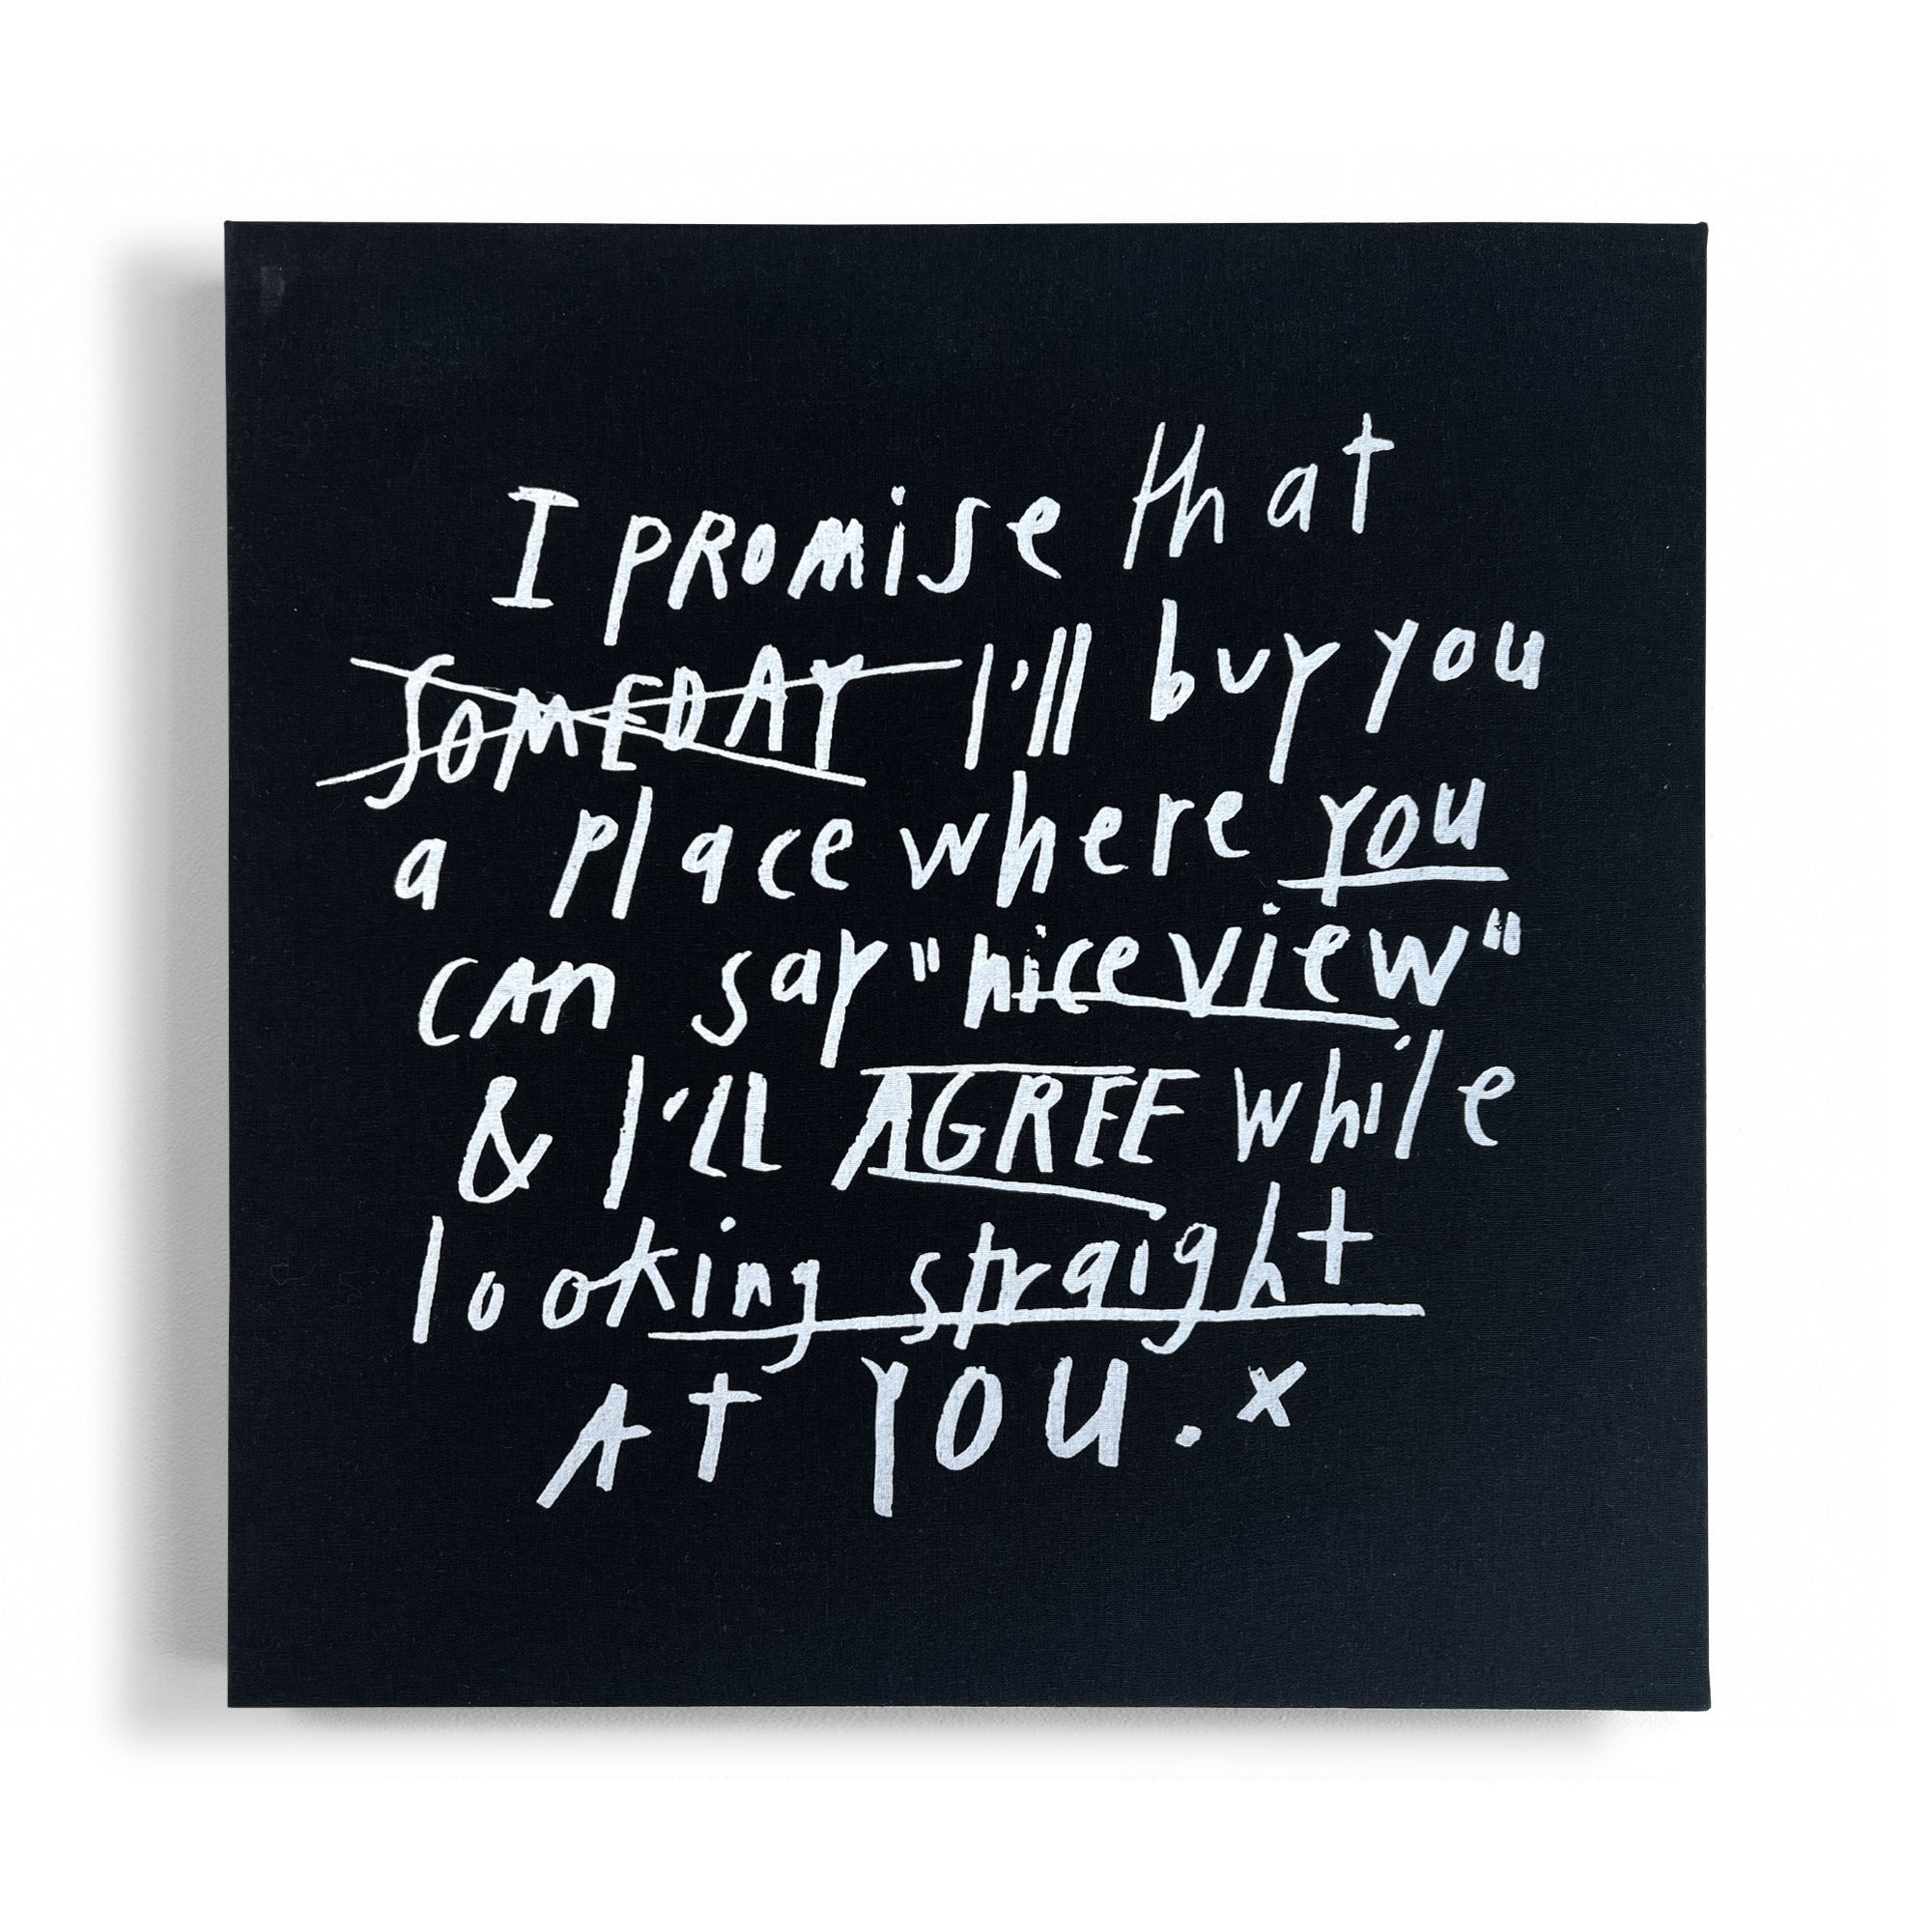 I PROMiSe that
SOMEDAY I'll buy you
a place where you
CAN say "nice view"
& I'LL AGREE while
looking straight
At YOU. x